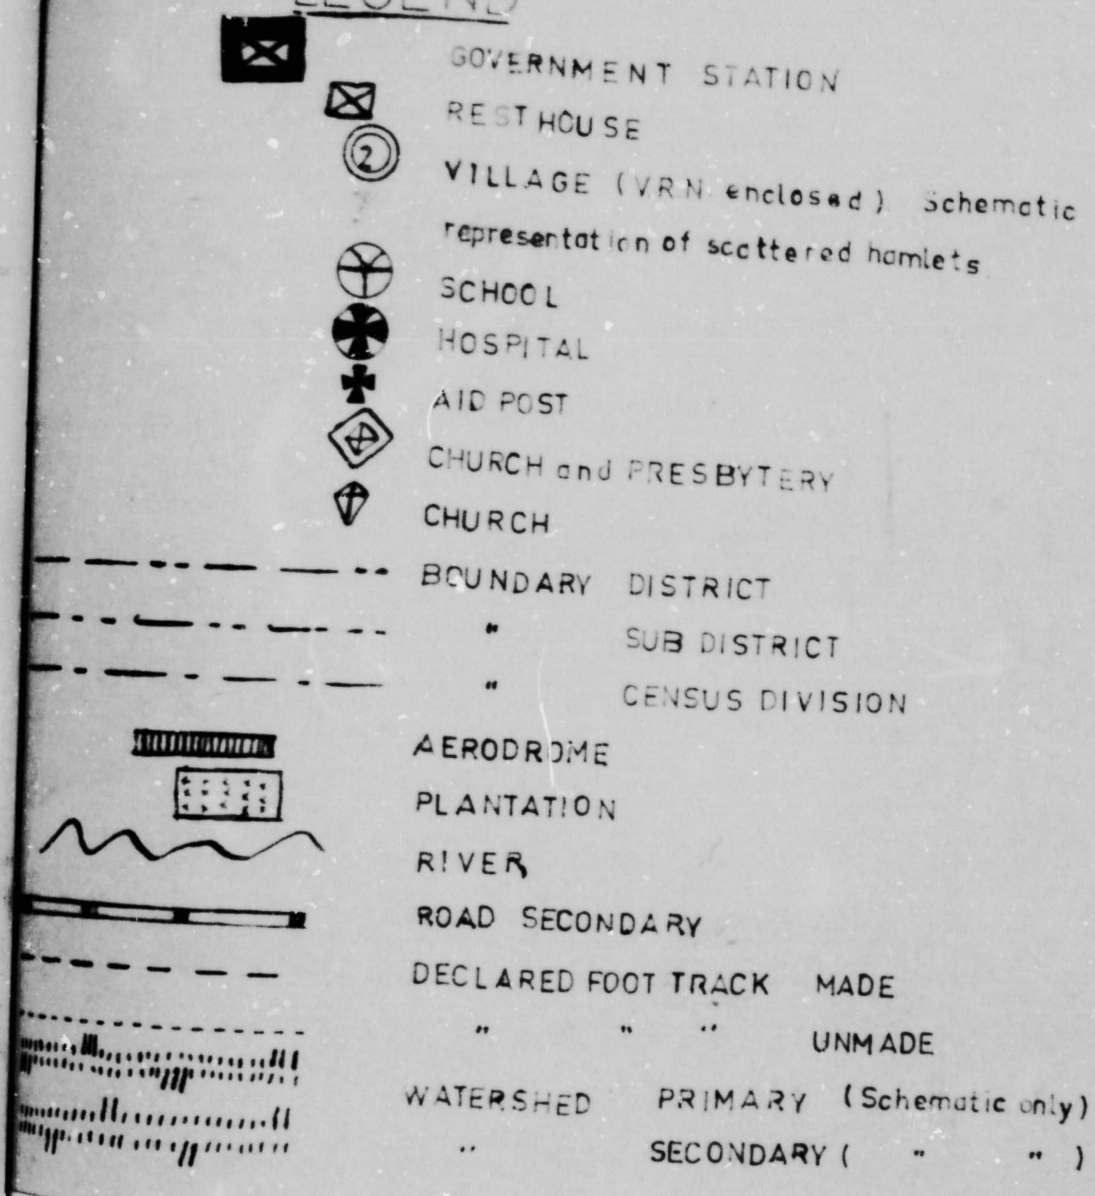 LEGEND
GOVERNMENT STATION
REST HOUSE
2 VILLAGE (VRN enclosed) Schematic
representation of scattered hamlets
SCHOOL
HOSPITAL
AID POST
CHURCH and PRESBYTERY
CHURCH
BOUNDARY DISTRICT
" SUB DISTRICT
" CENSUS DIVISION
AERODROME
PLANTATION
RIVER
ROAD SECONDARY
DECLARED FOOT TRACK MADE
" " " UNMADE
WATERSHED PRIMARY (Schematic only)
" SECONDARY ( " " )